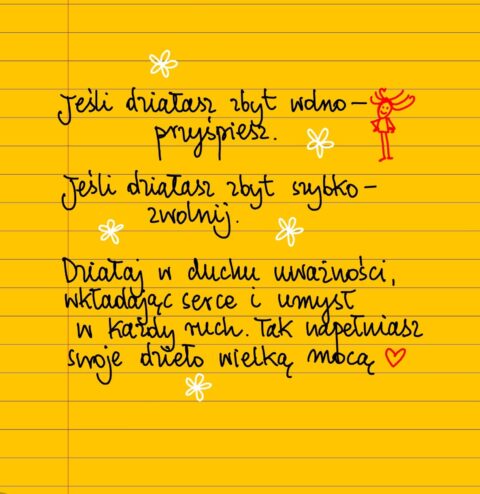 Jeśli działasz zbyt wolno –
przyśpiesz.
Jeśli działasz zbyt szybko –
zwolnij.
Działaj w duchu uważności,
wkładając serce i umysł
w każdy ruch. Tak napełniasz
swoje dzieło wielką mocą